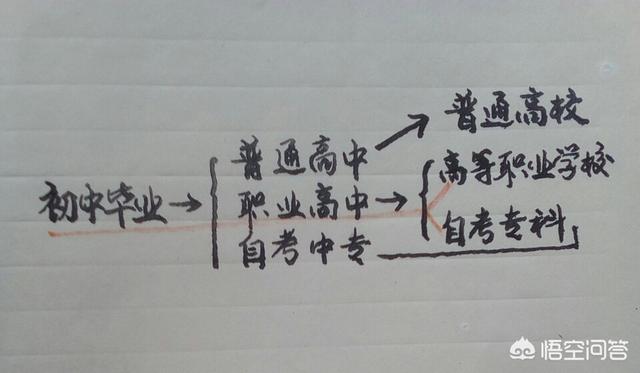 普通高校
普通高中
高等职业学校
初中毕业→
职业高中→
自考中专
自考专科
悟空问答